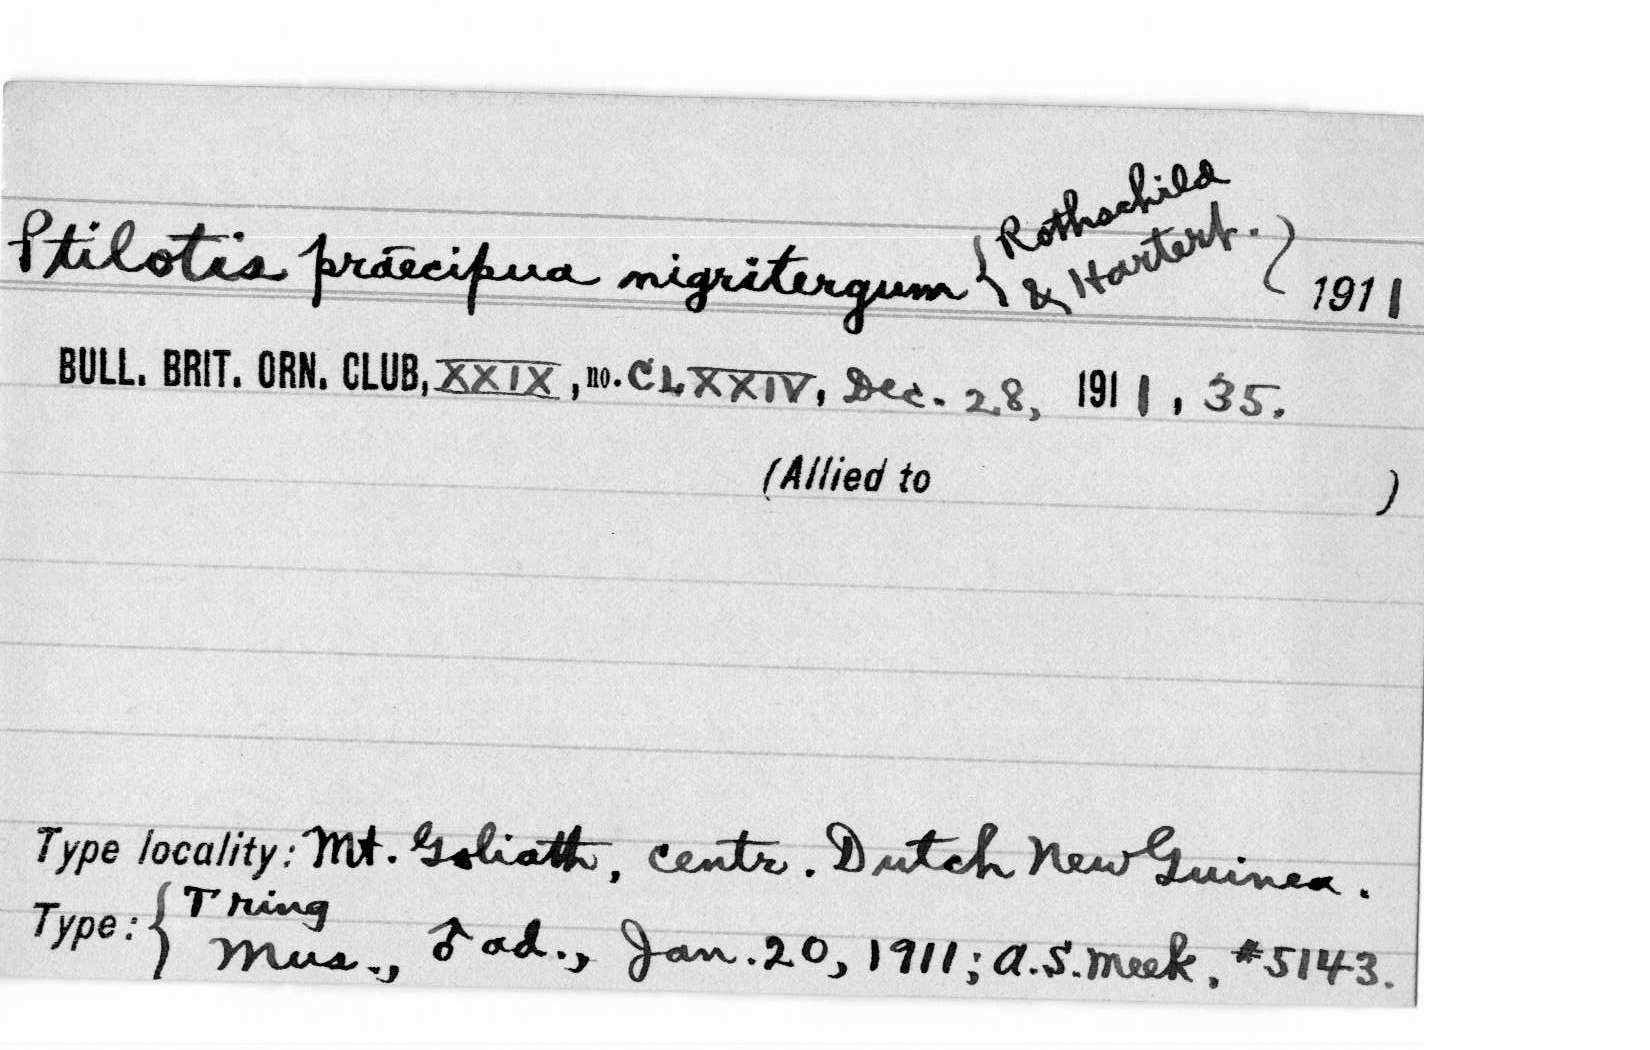 Ptilotis praecipua nigritergum { Rothschild & Hartert. } 1911
BULL. BRIT. ORN. CLUB, XXIX, no. CLXXIV, Dec. 28, 1911, 35.
(Allied to )
Type locality: Mt. Goliath, centr. Dutch New Guinea.
Type: { Tring Mus., ♂ ad., Jan. 20, 1911; A. S. Meek, #5143.